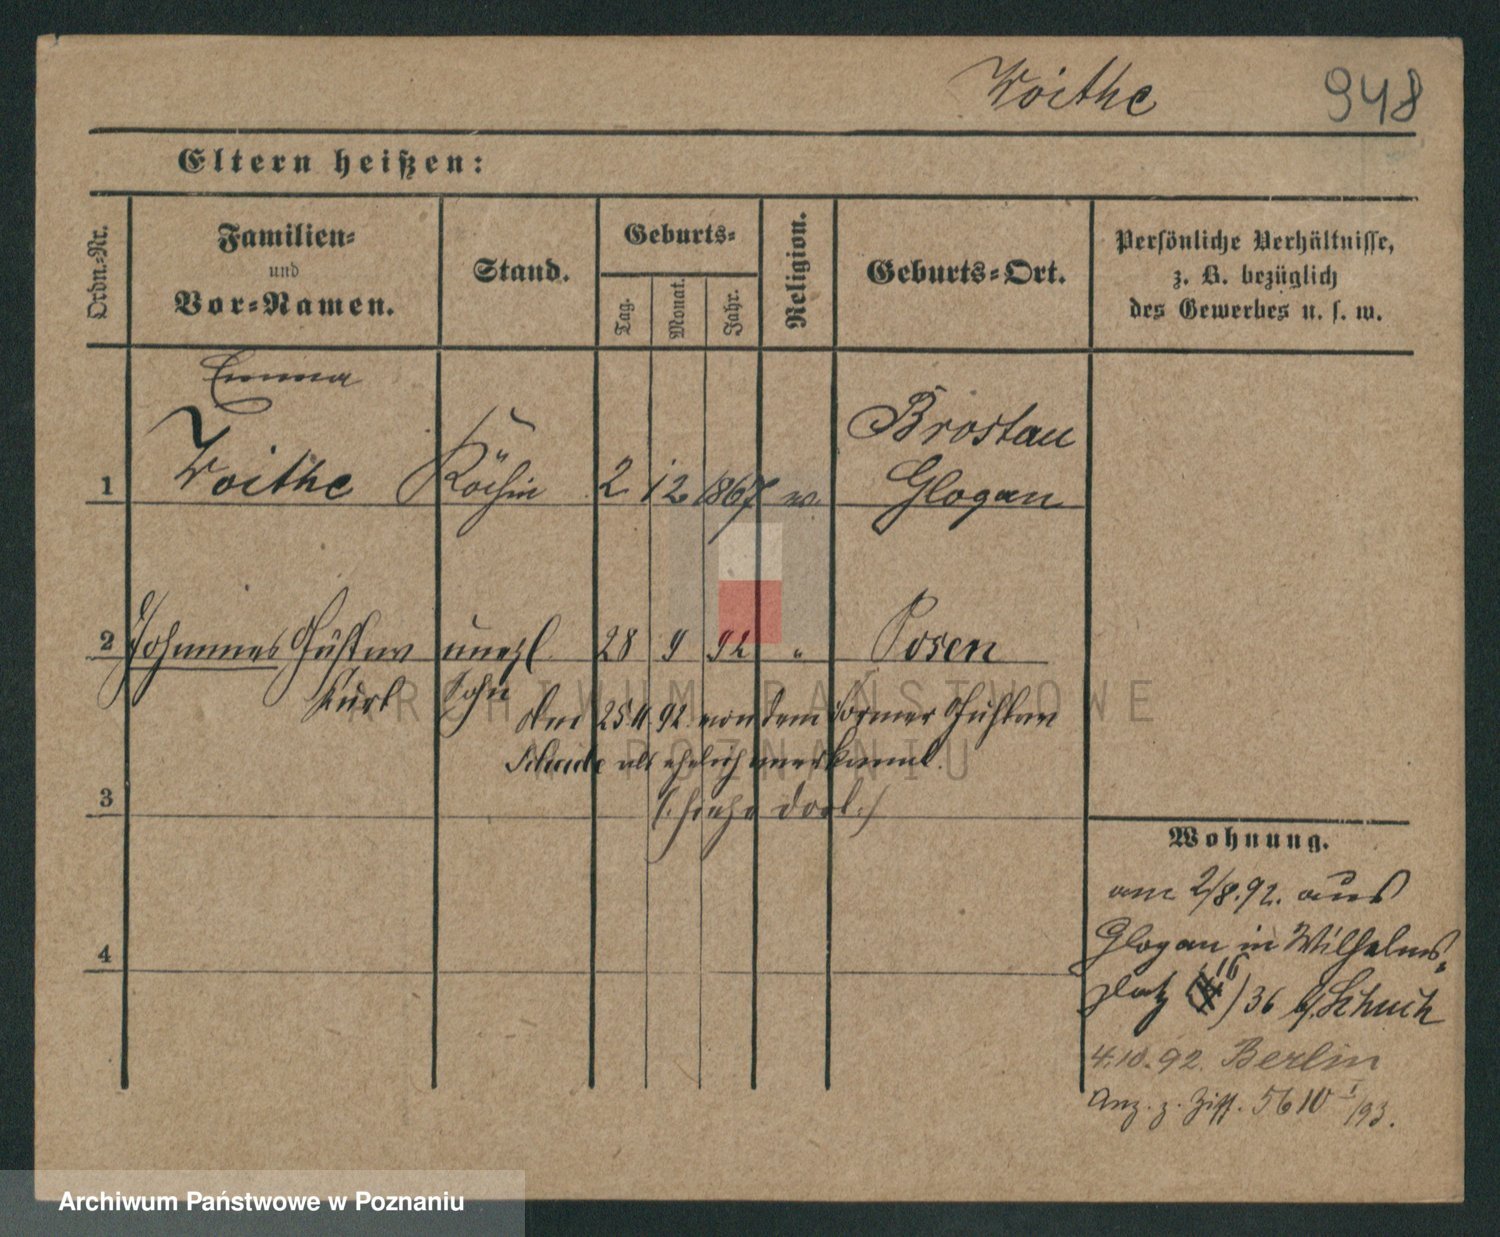 Woithe 948
Eltern heißen:
Ordn.-Nr.
Familien-
und
Vor-Namen.
Stand.
Geburts-
Tag.
Monat.
Jahr.
Religion.
Geburts-Ort.
Persönliche Verhältnisse,
z. B. bezüglich
des Gewerbes u. s. w.
Emma
1 Woithe Köchin 2 12 1867 Brostau
Glogau
2 Johannes Gustav unehl 28 9 92 " Posen
Kurt Sohn
Am 25.11.92. von dem Former Gustav
als ehelich anerkannt.
(: siehe dort :)
3
4
Wohnung.
am 2/8.92. aus
Glogau in Wilhelms-
platz 16) 36 b/ Schuch
4.10.92. Berlin
Anz. z. Ziff. 5610 1/93.
ARCHIWUM PAŃSTWOWE
W POZNANIU
Archiwum Państwowe w Poznaniu